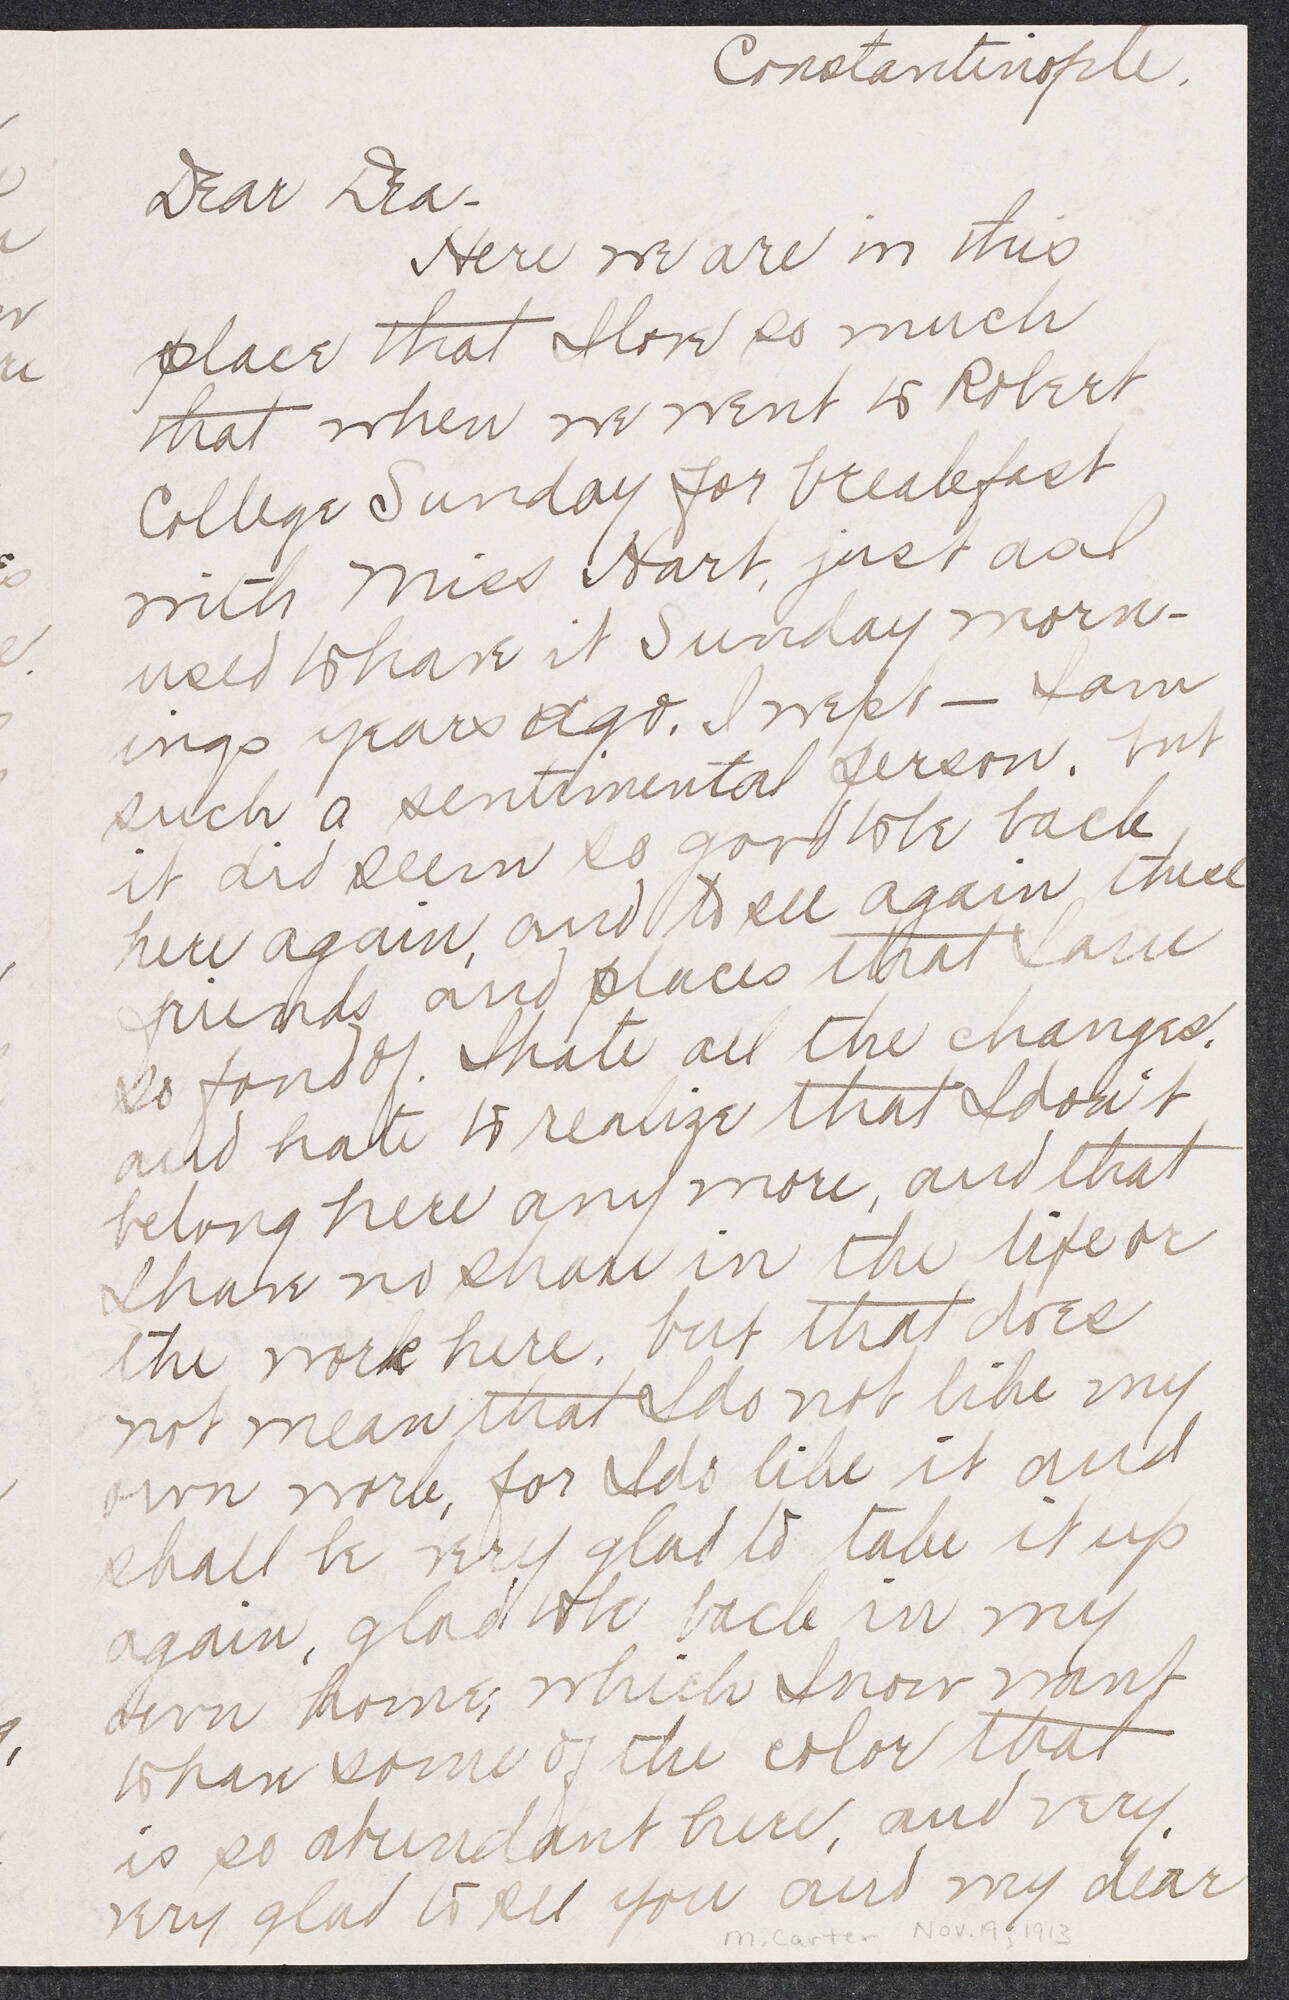 Constantinople.
Dear Dea-
Here we are in this
place that I love so much
that when we went to Robert
College Sunday for breakfast
with Miss Hart, just as I
used to have it Sunday morn-
ings years ago. I wept — I am
such a sentimental person. but
it did seem so good to be back
here again, and to see again these
friends and places that I am
so fond of. I hate all the changes.
and hate to realize that I don't
belong here any more, and that
I have no share in the life or
the work here. but that does
not mean that I do not like my
own work, for I do like it and
shall be very glad to take it up
again, glad to be back in my
own home, which I now want
to have some of the color that
is so abundant here, and very,
very glad to see you and my dear
M. Carter Nov. 19, 1913